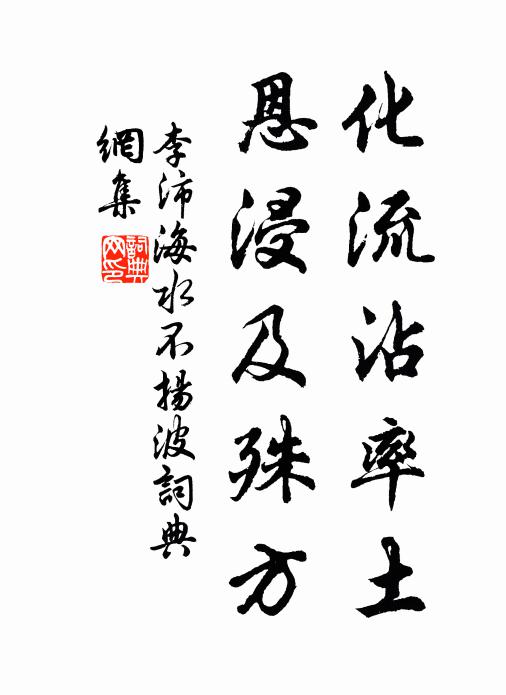 化流沾率土
恩浸及殊方
李沛海水不揚波詞典
網集
詞典
网印